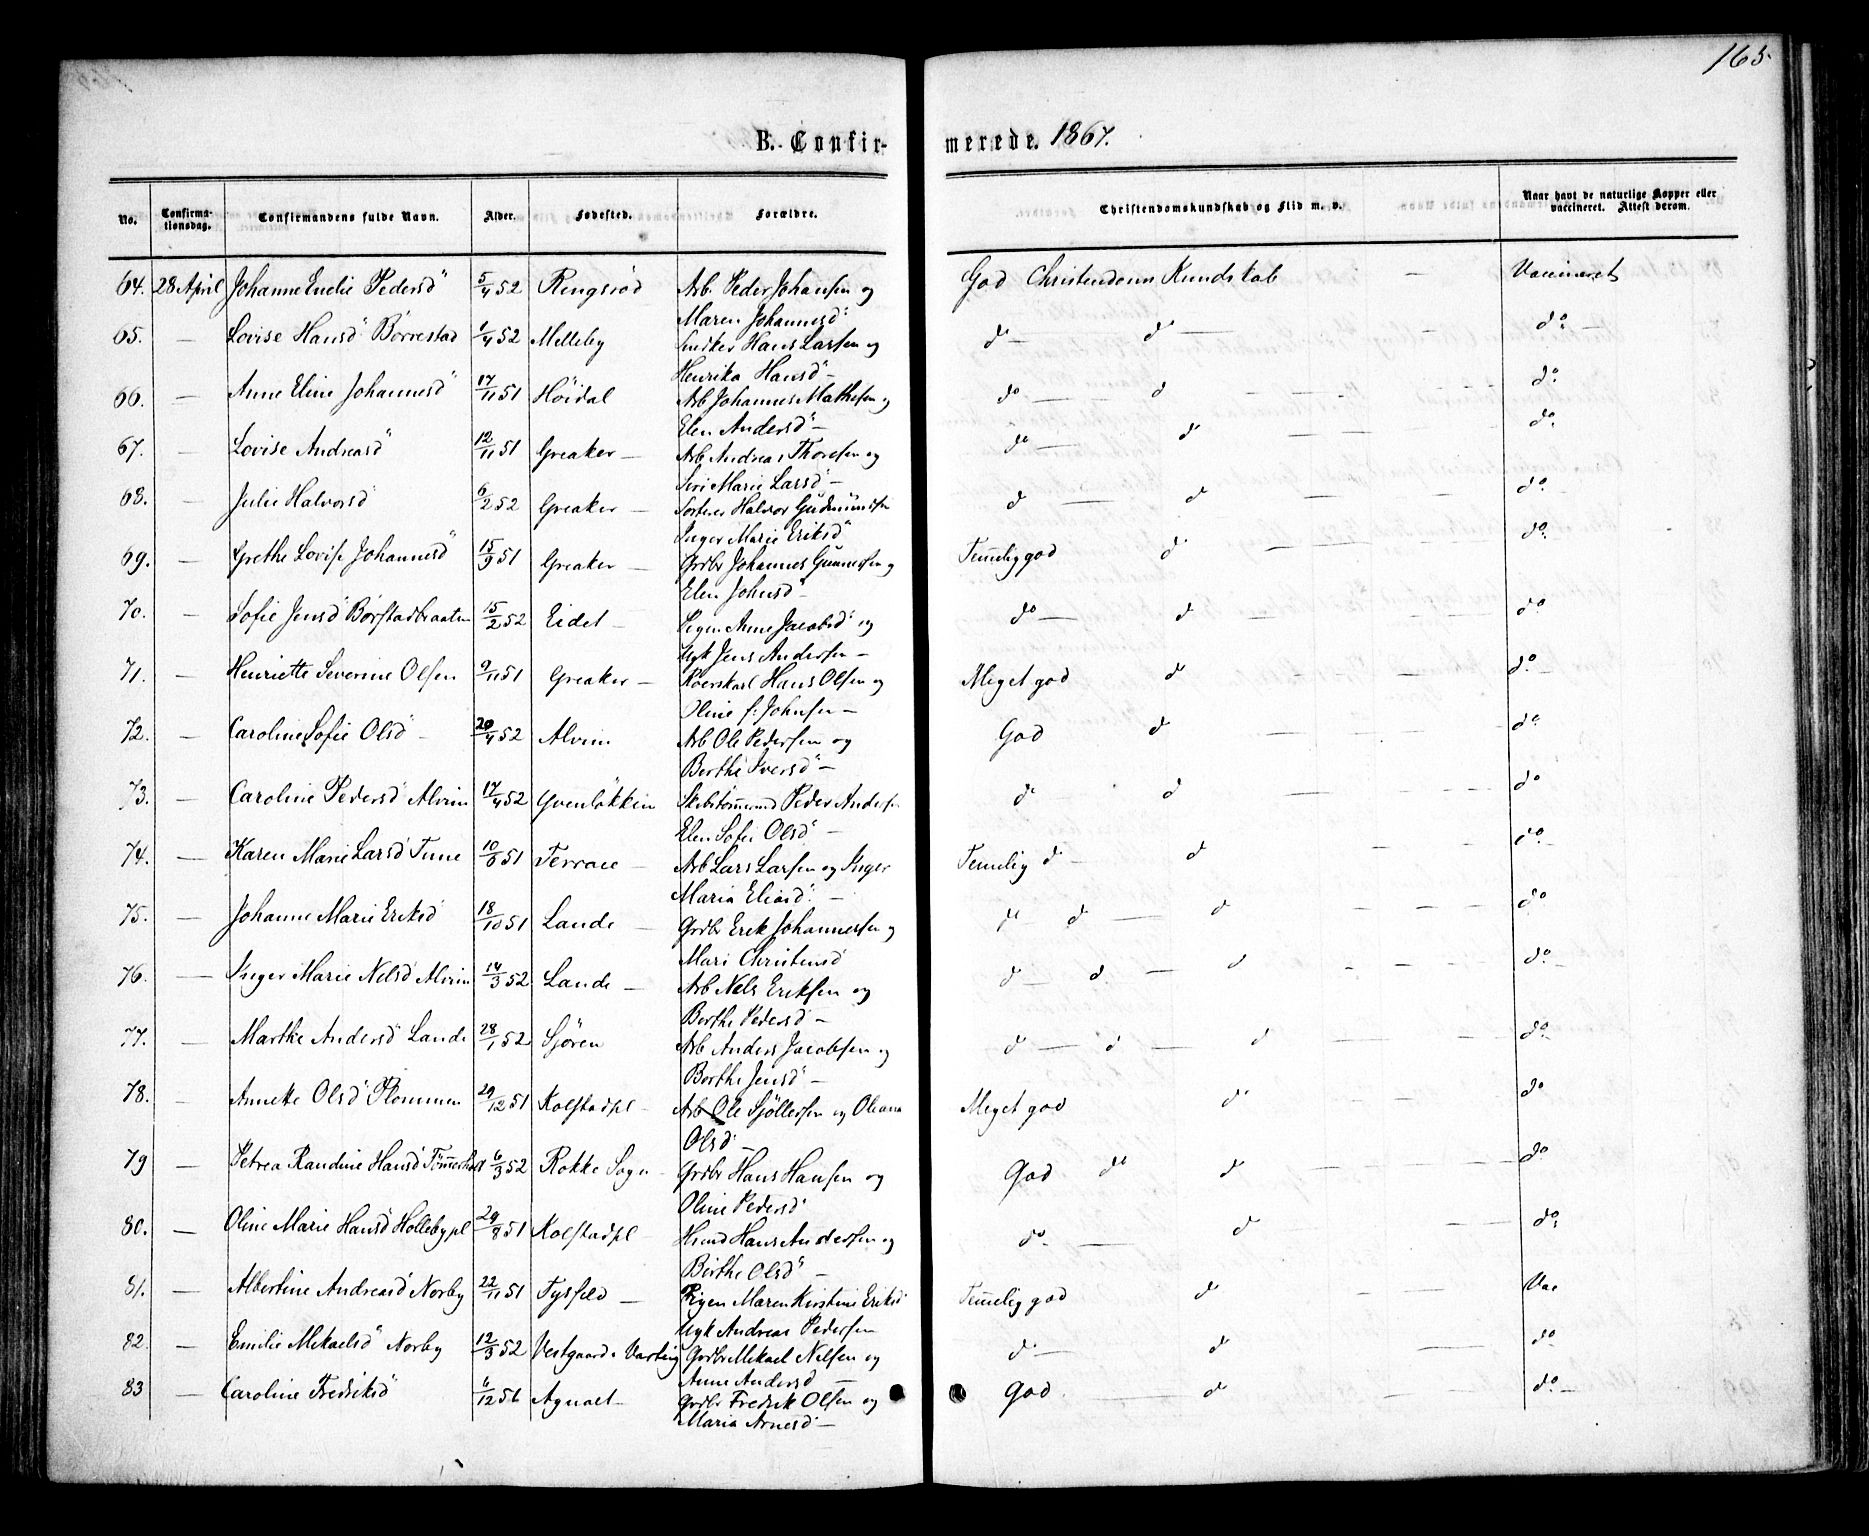 165.
B. Confirmerede. 1867.
No. Confirmationsdag. Confirmandens fulde Navn. Alder. Fødested. Forældre. Christendomskundskab og Flid m. v. Naar havt de naturlige Kopper eller vaccineret. Attest derom.
64. 28 April Johanne Emelie Pedersd" 5/4 52 Ringsrød Arb. Peder Johansen og God Christendoms Kundskab — Vaccineret
Maren Johannesd"
65. — Lovise Hansd" Børrestad 1/4 52 Melleby Snedker Hans Larsen og do — do — do —
Henrika Hansd" —
66. — Anne Eline Johannesd" 17/11 51 Höidal Arb Johannes Mathesen og do — d — do
Elen Andersd" —
67. — Lovise Andreasd" 12/11 51 Greaker — Arb Andreas Thoresen og do — d — do
Siri Marie Larsd —
68. — Julie Halvorsd 6/2 52 Greaker — Sorterer Halvor Gudmundsen d — d — do
Inger Marie Eriksd"
69. — Grethe Lovise Johannesd" 15/9 51 Greaker — Grdbr Johannes Gunnersen og Temelig god d — do
Elen Johnsd"
70. — Sofie Jensd" Børstadbraaten 15/2 52 Eidet — Pigen Anne Jacobsd" og do — d — do
Ugk Jens Andersen —
71. — Henriette Severine Olsen 9/11 51 Greaker — Hans Olsen og Meget god d — do —
Oline f: Johnsen —
72. — Caroline Sofie Olsd" — 20/4 52 Alvim Arb Ole Pedersen og God d — do
Berthe Iversd" —
73. — Caroline Pedersd" Alvim 17/4 52 Qvenløkken Peder Andersen d — d — do
Elen Sofie Olsd" —
74. — Karen Marie Larsd" Tune 10/6 51 Terraie — Arb Lars Larsen og Inger Temelig d — d — do
Maria Eliasd" —
75. — Johanne Marie Eriksd" 18/10 51 Lande — Grdbr Erik Johannesen og d d — d — do
Mari Christensd
76. — Inger Marie Nilsd" Alvim 14/3 52 Lande — Arb Nils Eriksen og d — d — d — do
Berthe Pedersd —
77. — Marthe Andersd" Lande 28/1 52 Sjøren Arb Anders Jacobsen og d — d — d — do
Berthe Jensd" —
78. — Annette Olsd" Plommen 29/12 51 Kolstadpl — Arb Ole Sjöllersen og Oleana Meget god d do
Olsd" —
79 — Petrea Randine Hansd" 6/3 52 Rokke Sogn — Grdbr Hans Hansen og God do d do
Oline Pedersd"
80. — Oline Marie Hansd" Hollebypl 29/8 51 Kolstadpl — Husmd Hans Andersen og do — d — do
Birthe Olsd" —
81. — Albertine Andreasd" Norby 22/11 51 Tysfeld — Pigen Maren Kirstine Eriksd" Temelig god d — Vac
Ugk Andreas Pedersen
82. — Emilie Mikaelsd" Norby 12/3 52 Vestgaard i Varteig Grdbr Mikael Nilsen og d — d — do
Anne Andersd —
83 — Caroline Fredriksd" 6/12 51 Agnalt — Grdbr Fredrik Olsen og God — d — do —
Maria Arnesd" —